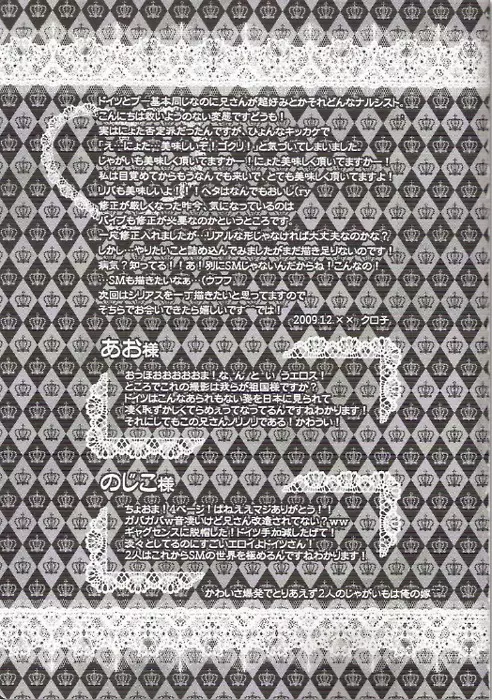 ドイツとプー基本同じなのに兄さんが超好みとかそれどんなナルシスト。
こんにちは救いようのない変態ですどうも!
実はにょた否定派だったんですが、ひょんなキッカケで
「え…にょた…美味しいぞ!ゴクリ!」と気づいてしまいました。
じゃがいも美味しく頂いてますかー!にょたも美味しく頂いてますかー!
私は目覚めてからもうなんでも来いで、とても美味しく頂いてますよ!
リバも美味しいよ!!!ヘタはなんでもおいし(ry
修正が厳しくなった昨今、気になっているのは
バイブも修正が必要なのかというところです。
一応修正入れましたが…リアルな形じゃなければ大丈夫なのかな?
しかし…やりたいこと詰め込んでみましたがまだ描き足りないです!
病気?知ってる!!あ!別にSMじゃないんだからね!こんなの!
…SMも描きたいなぁ…(ウフフ
次回はシリアスを一丁描きたいと思ってますので
そちらでお会いできたら嬉しいです…では!
2009.12.×× クロ子
あお様
おっほおおおおおま!な、ん、と、い、うエロス!
ところでこれの撮影は我らが祖国様ですか?
ドイツはこんなあられもない姿を日本に見られて
凄く恥ずかしくてらめぇってなってるんですねわかります!
それにしてもこの兄さんノリノリである!かわうい!
のじこ様
ちょおま!4ページ!ぱねええマジありがとう!!
ガバガバw音凄いけど兄さん改造されてない?ww
ギャグセンスに脱帽した!ドイツ手加減したげて!
淡々としてるのにすごいエロイよドイツさん!
2人はこれからSMの世界を極めるんですねわかります!
かわいさ爆発でとりあえず2人のじゃがいもは俺の嫁…